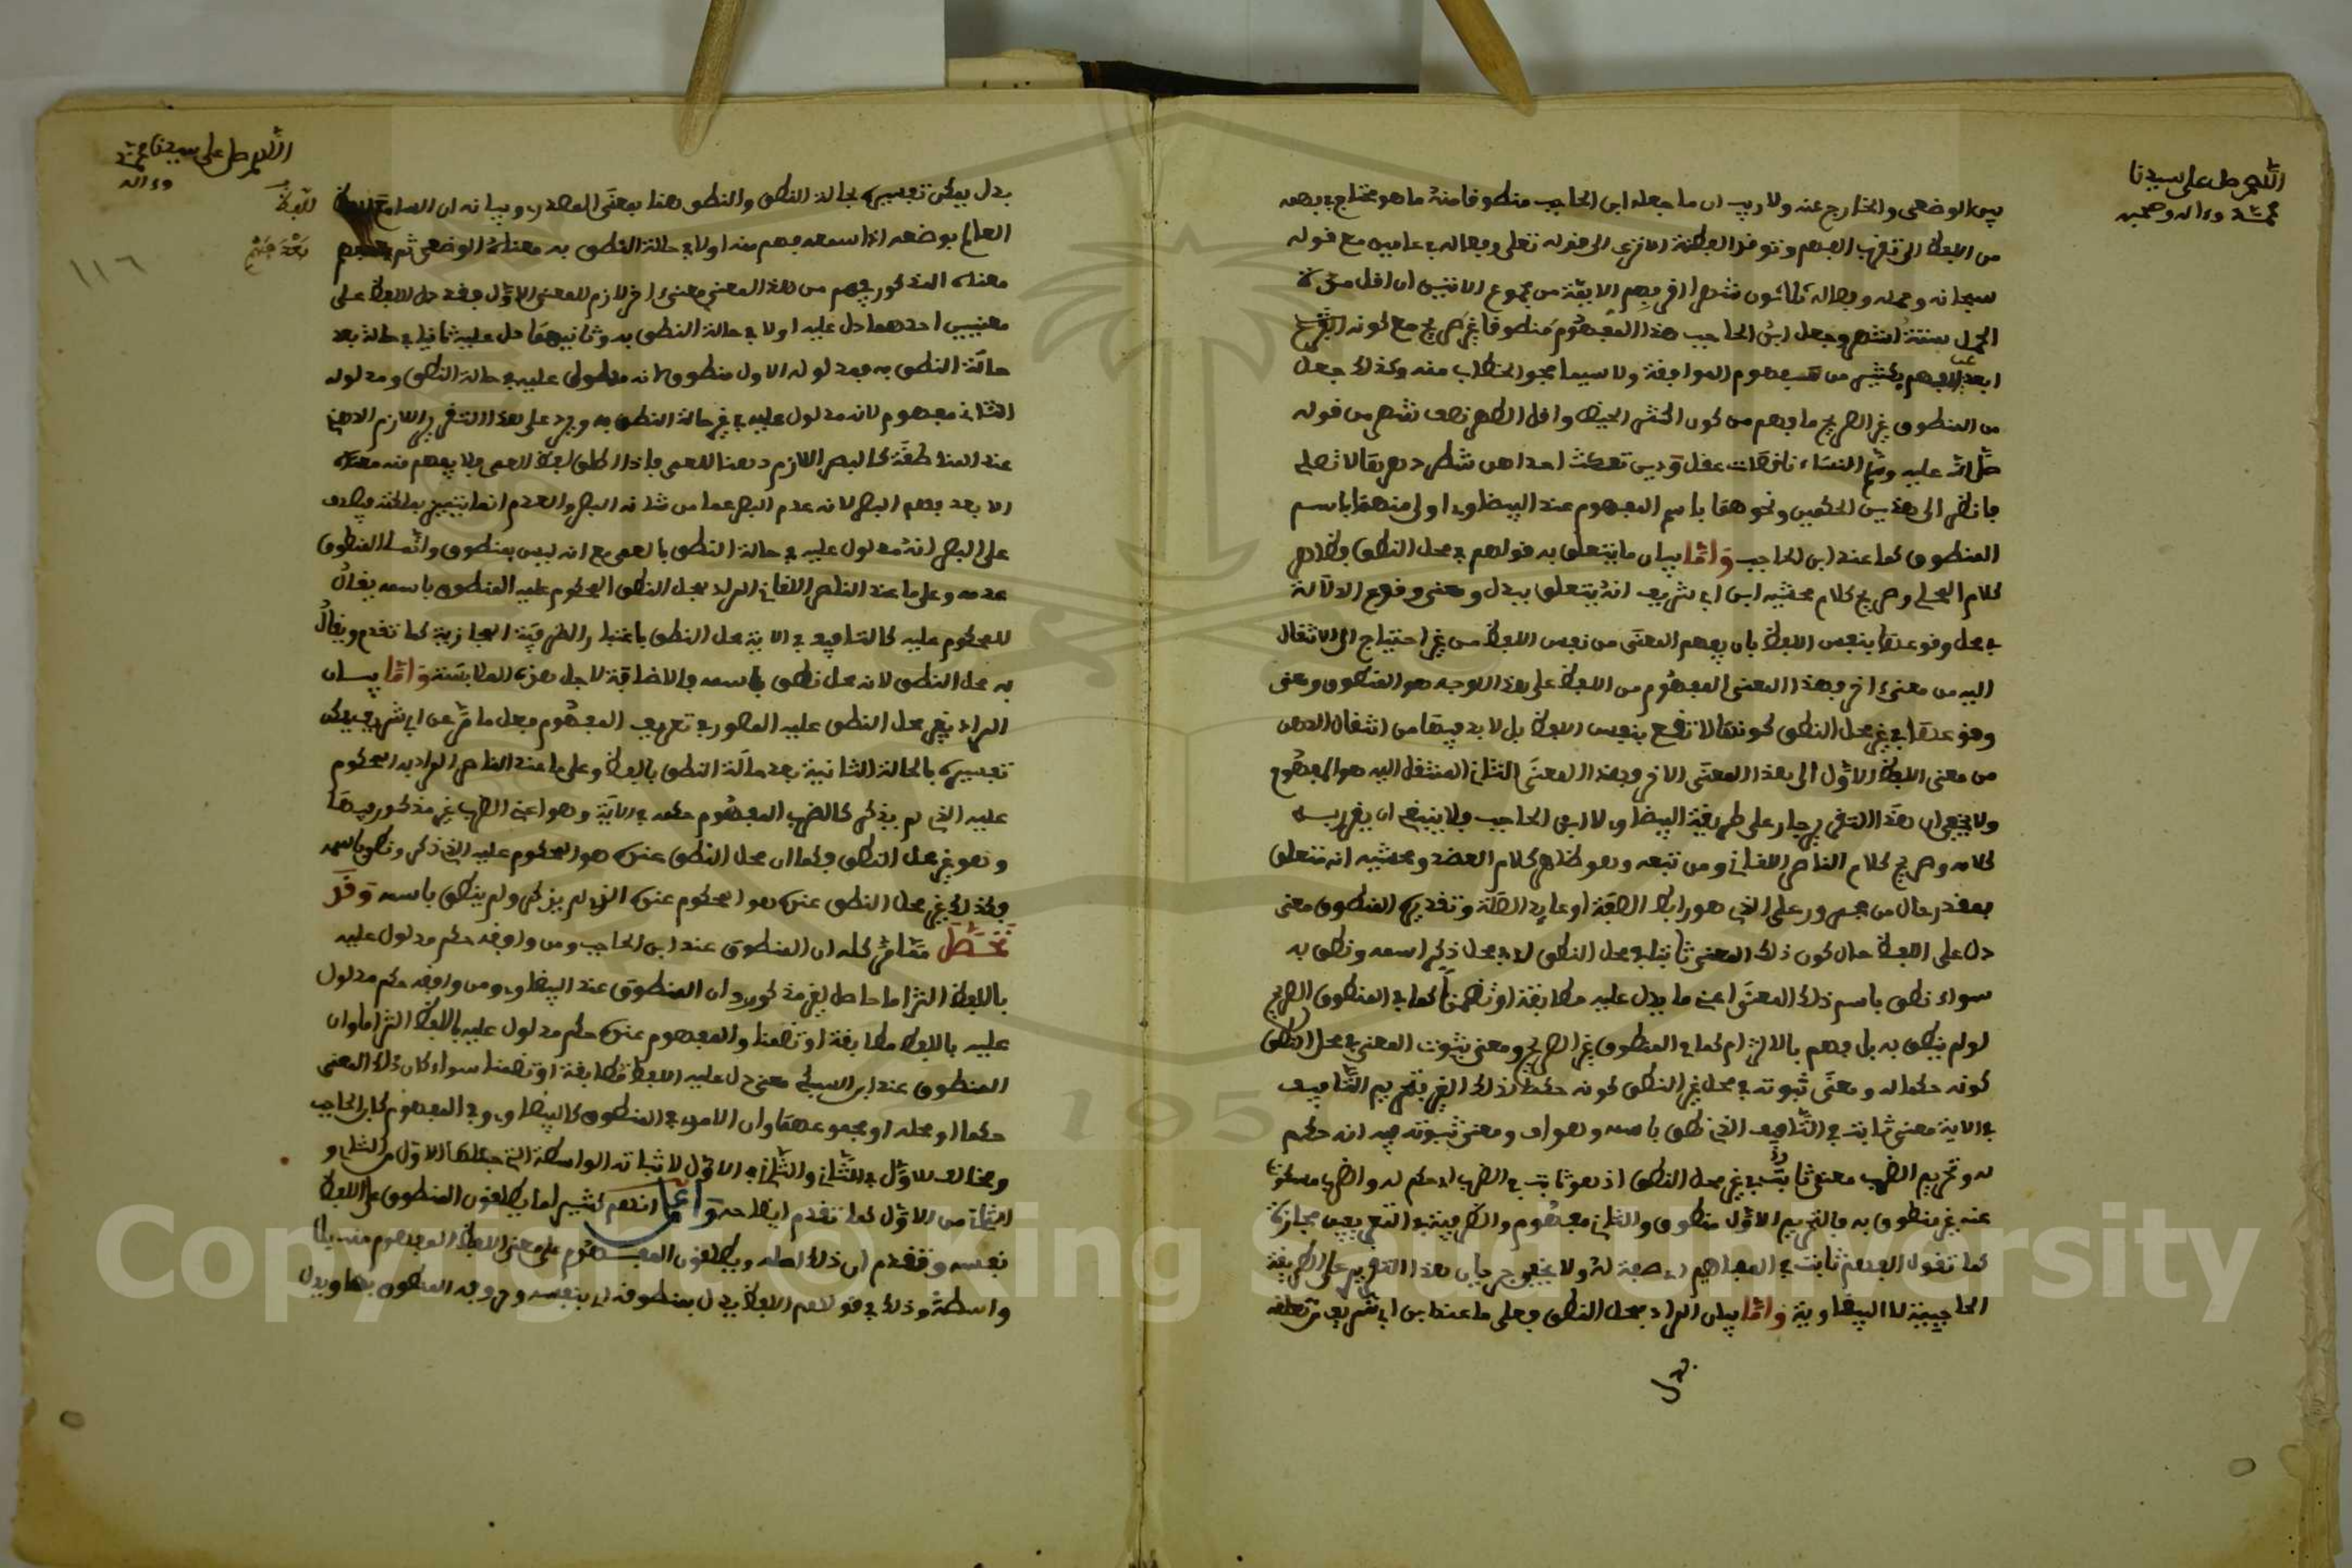 اللهم صل على سيدنا
محمد وءاله وصحبه
بين الوضعي والخارج عنه ولا ريب ان ما جعله ابن الحاجب منطوقا منه ما هو محتاج في فهمه
من اللفظ الى تقرب الفهم وتوقد الفطنة الا ترى الى قوله تعلى وفصاله في عامين مع قوله
سبحانه وحمله وفصاله ثلاثون شهرا افيفهم الاية من مجموع الايتين ان اقل مدة
الحمل ستة اشهر وجعل ابن الحاجب هذا المفهوم منطوقا غير صريح مع كونه
ابعد عن الفهم بكثير من مفهوم الموافقة ولا سيما فحوى الخطاب منه وكذلك جعل
من المنطوق غير الصريح ما فهم من كون اكثر الحيض واقل الطهر نصف شهر من قوله
صلى الله عليه وسلم النساء ناقصات عقل ودين تمكث احداهن شطر دهرها لا تصلي
فانظر الى هذين الحكمين ونحوهما باسم المفهوم عند البيضاوي اولى منهما باسم
المنطوق كما عند ابن الحاجب واما بيان ما يتعلق به قولهم في محل النطق فظاهر
كلام المحلي وصريح كلام محشيه ابن ابي شريف انه يتعلق بدل ومعنى وقوع الدلالة
في محل وقوعها بنفس اللفظ بان يفهم المعنى من نفس اللفظ من غير احتياج الى الانتقال
اليه من معنى اخر وهذا المعنى المفهوم من اللفظ على هذا الوجه هو المنطوق ومعنى
وقوعها في غير محل النطق كونها لا تقع بنفس اللفظ بل لا بد فيها من انتقال الذهن
من معنى اللفظ الاول الى هذا المعنى الاخر وهذا المعنى الثاني المنتقل اليه هو المفهوم
ولا يخفى ان هذا التقرير جار على طريقة البيضاوي لا ابن الحاجب فلا ينبغي ان يقرر به
كلامه وصريح كلام الناصر اللقاني ومن تبعه وهو ظاهر كلام العضد ومحشيه انه متعلق
بمقدر حال من مجرور على الذي هو رابط الصفة او عايد الصلة وتقديره المنطوق معنى
دل على اللفظ حال كون ذلك المعنى ثابتا في محل النطق اي في محل ذكر اسمه ونطق به
سواء نطق باسم ذلك المعنى اعني ما يدل عليه مطابقة او تضمنا كما في المنطوق الصريح
او لم ينطق به بل فهم بالالتزام كما في المنطوق غير الصريح ومعنى ثبوت المعنى في محل النطق
كونه حكما له ومعنى ثبوته في محل غير النطق كونه حكما لذلك الغير فتحريم التافيف
في الاية معنى ثابت في التافيف الذي نطق باسمه وهو اف ومعنى ثبوته فيه انه حكم
له وتحريم الضرب معنى ثابت في غير محل النطق اذ هو ثابت في الضرب اي حكم له والضرب مسكوت
عنه غير منطوق به فالتحريم الاول منطوق والثاني مفهوم والظرفية في التعريفين مجازية
كما تقول الفهم ثابت في ابراهيم اي صفة له ولا يخفى جريان هذا التقرير على الطريقة
الحاجبية لا البيضاوية واما بيان المراد بمحل النطق فعلى ما عند ابن ابي شريف من تعلقه
بدل
اللهم صل على سيدنا محمد
وءاله
١١٦
بدل يمكن تفسيره بحالة النطق والنطق هنا بمعنى المصدر وبيانه ان السامع
العالم بوضعه اذا سمعه فهم منه اولا في حالة النطق به معناه الوضعي ثم
معناه المذكور فهم من هذا المعنى معنى اخر لازم للمعنى الاول فقد دل اللفظ على
معنيين احدهما دل عليه اولا في حالة النطق به وثانيهما دل عليه ثانيا في حالة بعد
حالة النطق به فمدلوله الاول منطوق لانه مدلول عليه في حالة النطق ومدلوله
الثاني مفهوم لانه مدلول عليه في غير حالة النطق به ويرد على هذا التقرير اللازم الذهني
عند المناطقة كالبصر اللازم ذهنا للعمى فاذا اطلق لفظ العمى فلا يفهم منه معناه
الا بعد فهم البصر لانه عدم البصر عما من شانه البصر والعدم انما
على البصر انه مدلول عليه في حالة النطق بالعمى مع انه ليس بمنطوق وانما المنطوق
عدمه وعلى ما عند الناصر اللقاني المراد بمحل النطق المحكوم عليه المنطوق باسمه يقال
للمحكوم عليه كالتافيف في الاية محل النطق باعتبار الظرفية المجازية كما تقدم ويقال
به محل النطق لانه محل نطق باسمه والاضافة لاجل هذه الملابسة واما بيان
المراد بغير محل النطق عليه المذكور في تعريف المفهوم فعلى ما مر عن ابن ابي شريف يمكن
تفسيره بالحالة الثانية بعد حالة النطق باللفظ وعلى ما عند الناصر المراد به المحكوم
عليه الذي لم يذكر كالضرب المفهوم حكمه في الاية وهو اعني الضرب غير مذكور فيها
وهو غير محل النطق وكما ان محل النطق عنده هو المحكوم عليه الذي ذكر ونطق باسمه
فكذلك غير محل النطق عنده هو المحكوم عنده الذي لم يذكر ولم ينطق باسمه وقد
تحصل مما مر كله ان المنطوق عند ابن الحاجب ومن وافقه حكم مدلول عليه
باللفظ التزاما حاصل لغير مذكور وان المنطوق عند البيضاوي ومن وافقه حكم مدلول
عليه باللفظ مطابقة او تضمنا والمفهوم عنده حكم مدلول عليه باللفظ التزاما وان
المنطوق عند ابن السبكي معنى دل عليه اللفظ مطابقة او تضمنا سواء كان ذلك المعنى
حكما او محله او مجموعهما وان الامر في المنطوق كالبيضاوي وفي المفهوم كابن الحاجب
ومخالف للاول في الثاني وللثاني في الاول لاثباته الواسطة التي جعلها الاول من الثاني و
الثاني من الاول كما تقدم ايضاحه واعلم انهم كثيرا ما يطلقون المنطوق على اللفظ
نفسه وتقدم ان ذلك اصله ويطلقون المفهوم على معنى اللفظ المفهوم منه بلا
واسطة وذلك في قولهم اللفظ يدل بمنطوقه اي بنفسه وحروفه المنطوق بها ويدل